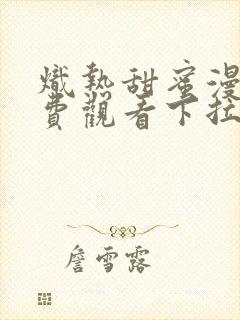 熾熱甜蜜漫
費觀看下拉
詹雪露